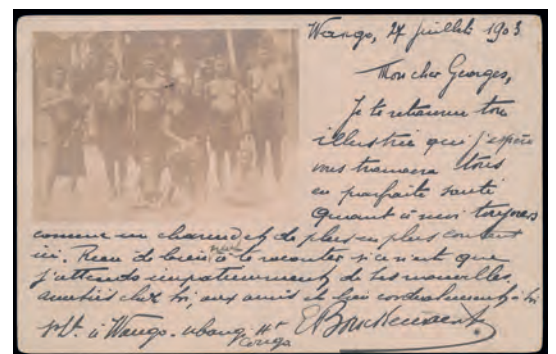 Wango, 27 juillet 1903
Mon cher Georges,
Je te retourne ton
illustrée qui j'espère
vous trouvera tous
en parfaite santé
Quant à moi toujours
comme un charme, et de plus en plus content
ici. Rien de bien neuf à te raconter si ce n'est que
j'attends impatiemment de tes nouvelles.
amitiés chez toi, aux amis et bien cordialement à toi
à Wango. Ubangi Ht
Congo